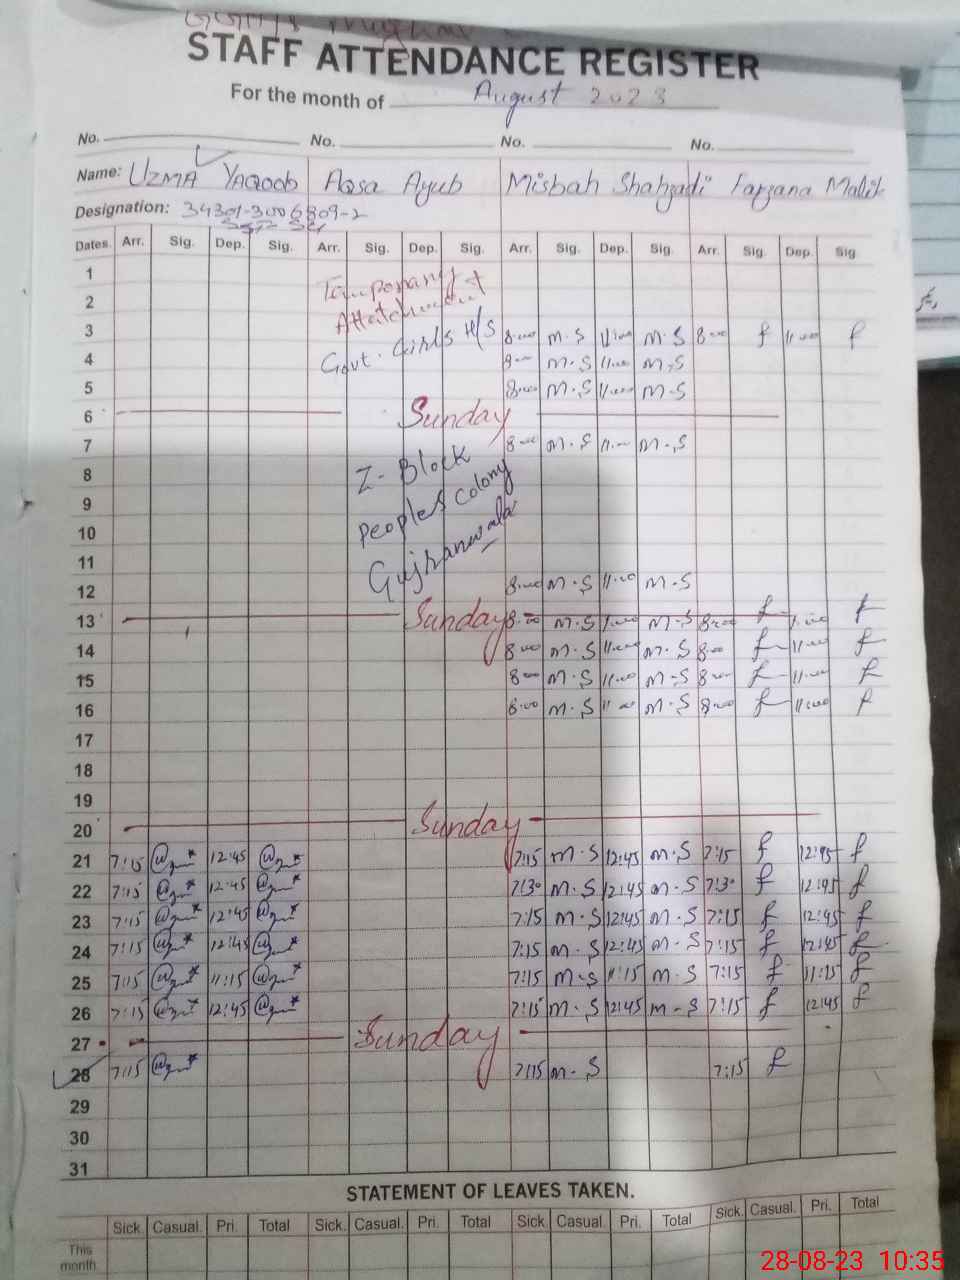 STAFF ATTENDANCE REGISTER
For the month of August 2023
No. No. No. No.
Name: UZMA YAQOOB Aqsa Ayub Misbah Shahzadi Farzana Malik
Designation: 34301-3006809-2
Dates. Arr. Sig. Dep. Sig. Arr. Sig. Dep. Sig. Arr. Sig. Dep. Sig. Arr. Sig. Dep. Sig
1 Temporary
2 Attatchment
3 Govt. Girls H/S 8:00 M.S 11:00 M.S 8:00 f 11:00 f
4 8:00 M.S 11:00 M.S
5 8:00 M.S 11:00 M-S
6 Sunday
7 8:00 M.S 11:00 M.S
8 Z-Block
9 Peoples Colony
10
11 Gujranwala
12 8:00 M.S 11:00 M.S
13 Sunday 8:00 M.S 11:00 M.S 8:00 f 11:00 f
14 8:00 M.S 11:00 M.S 8:00 f 11:00 f
15 8:00 M.S 11:00 M-S 8:00 f 11:00 f
16 8:00 M.S 11:00 M.S 8:00 f 11:00 f
17
18
19
20 Sunday
21 7:15 12:45 7:15 M-S 12:45 M.S 7:15 f 12:45 f
22 7:15 12:45 7:30 M.S 12:45 M.S 7:30 f 12:45 f
23 7:15 12:45 7:15 M-S 12:45 M-S 7:15 f 12:45 f
24 7:15 12:45 7:15 M-S 12:45 M-S 7:15 f 12:45 f
25 7:15 11:15 7:15 M-S 11:15 M-S 7:15 f 11:15 f
26 7:15 12:45 7:15 M-S 12:45 M-S 7:15 f 12:45 f
27 Sunday
28 7:15 7:15 M-S 7:15 f
29
30
31
STATEMENT OF LEAVES TAKEN.
Sick. Casual. Pri. Total Sick. Casual. Pri. Total Sick. Casual. Pri. Total Sick. Casual. Pri. Total
This
month.
28-08-23 10:35